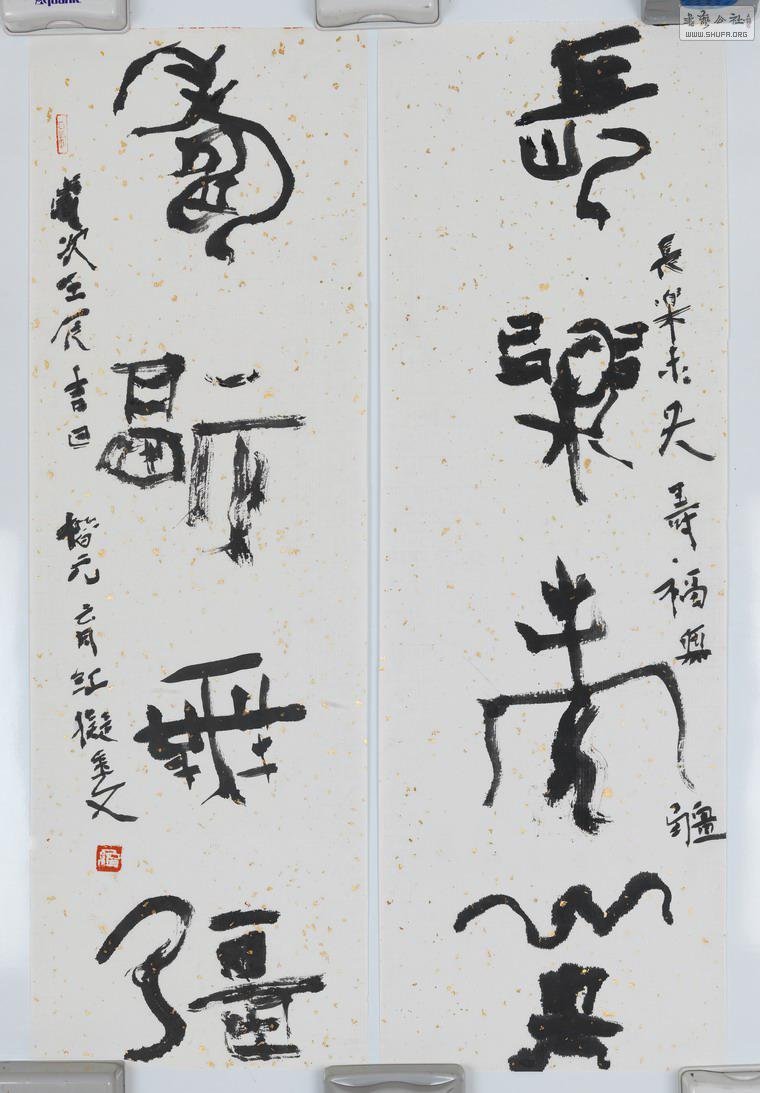 長樂未央
長樂未央壽福無疆
壽福無疆
歲次壬辰
書藝公社
WWW.SHUFA.ORG